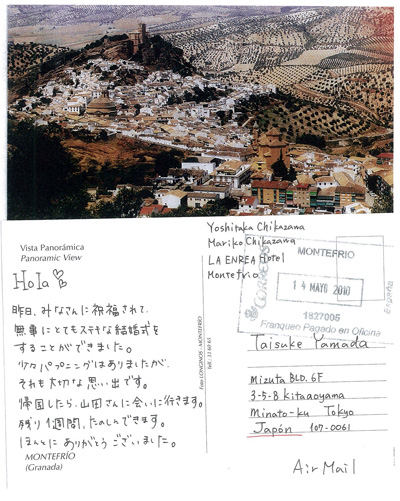 Vista Panorámica
Panoramic View
Hola
昨日、みなさんに祝福されて、
無事にとてもステキな結婚式を
することができました。
少々ハプニングはありましたが、
それも大切な思い出です。
帰国したら、山田さんに会いに行きます。
残り1週間、たのしんできます。
ほんとにありがとうございました。
MONTEFRÍO
(Granada)
Foto LONGINOS - MONTEFRIO
Yoshitaka Chikazawa
Mariko Chikazawa
LA ENREA Hotel
Montefrio
CORREOS
MONTEFRIO
14 MAYO 2010
1827005
Franqueo Pagado en Oficina
España
Taisuke Yamada
Mizuta BLD. 6F
3-5-8 Kitaaoyama
Minato-ku Tokyo
Japón 107-0061
Air Mail